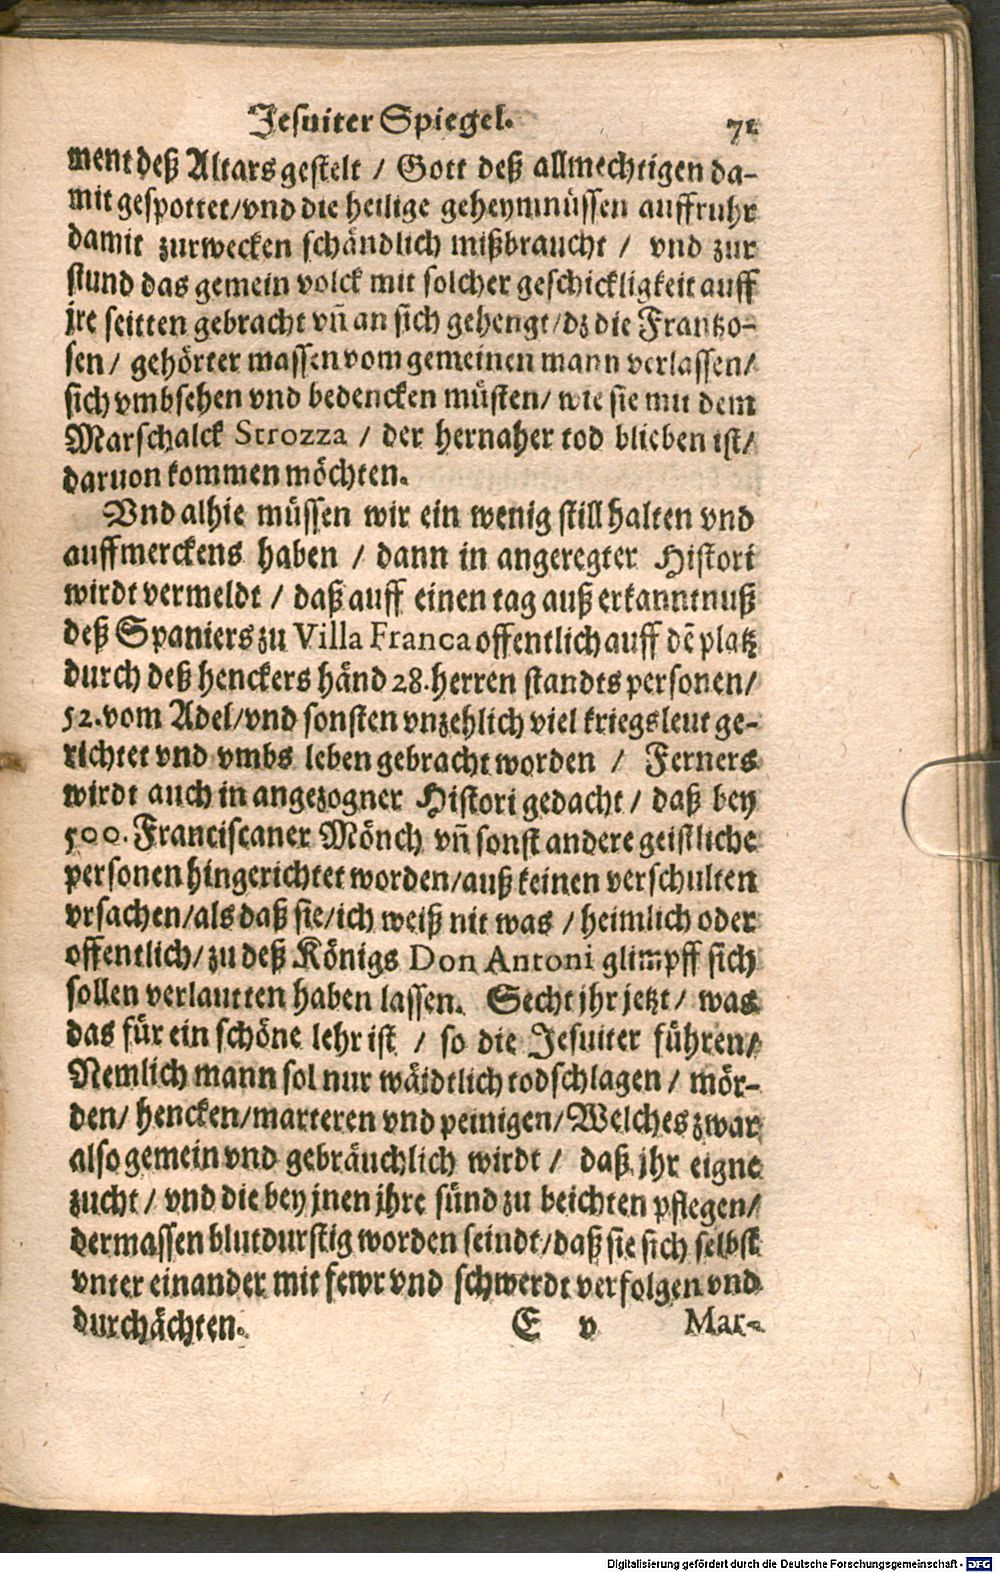 Jesuiter Spiegel. 71
ment deß Altars gestelt / Gott deß allmechtigen da-
mit gespottet/vnd die heilige geheymnüssen auffruhr
damit zurwecken schändlich mißbraucht / vnd zur
stund das gemein volck mit solcher geschickligkeit auff
jre seitten gebracht vñ an sich gehengt/dz die Frantzo-
sen / gehörter massen vom gemeinen mann verlassen/
sich vmbsehen vnd bedencken müsten/ wie sie mit dem
Marschalck Strozza / der hernaher tod blieben ist/
daruon kommen möchten.
Vnd alhie müssen wir ein wenig still halten vnd
auffmerckens haben / dann in angeregter Histori
wirdt vermeldt / daß auff einen tag auß erkanntnuß
deß Spaniers zu Villa Franca offentlich auff dē platz
durch deß henckers händ 28. herren standts personen/
52. vom Adel/vnd sonsten vnzehlich viel kriegsleut ge-
richtet vnd vmbs leben gebracht worden / Ferners
wirdt auch in angezogner Histori gedacht / daß bey
500. Franciscaner Mönch vñ sonst andere geistliche
personen hingerichtet worden/auß keinen verschulten
vrsachen/als daß sie/ich weiß nit was / heimlich oder
offentlich/ zu deß Königs Don Antoni glimpff sich
sollen verlautten haben lassen. Secht jhr jetzt / was
das für ein schöne lehr ist / so die Jesuiter führen/
Nemlich mann sol nur wäidtlich todschlagen / mör-
den/ hencken/marteren vnd peinigen/ Welches zwar
also gemein vnd gebräuchlich wirdt / daß jhr eigne
zucht / vnd die bey jnen jhre sünd zu beichten pflegen/
dermassen blutdurstig worden seindt/daß sie sich selbst
vnter einander mit fewr vnd schwerdt verfolgen vnd
durchächten. E v Mar-
Digitalisierung gefördert durch die Deutsche Forschungsgemeinschaft - DFG